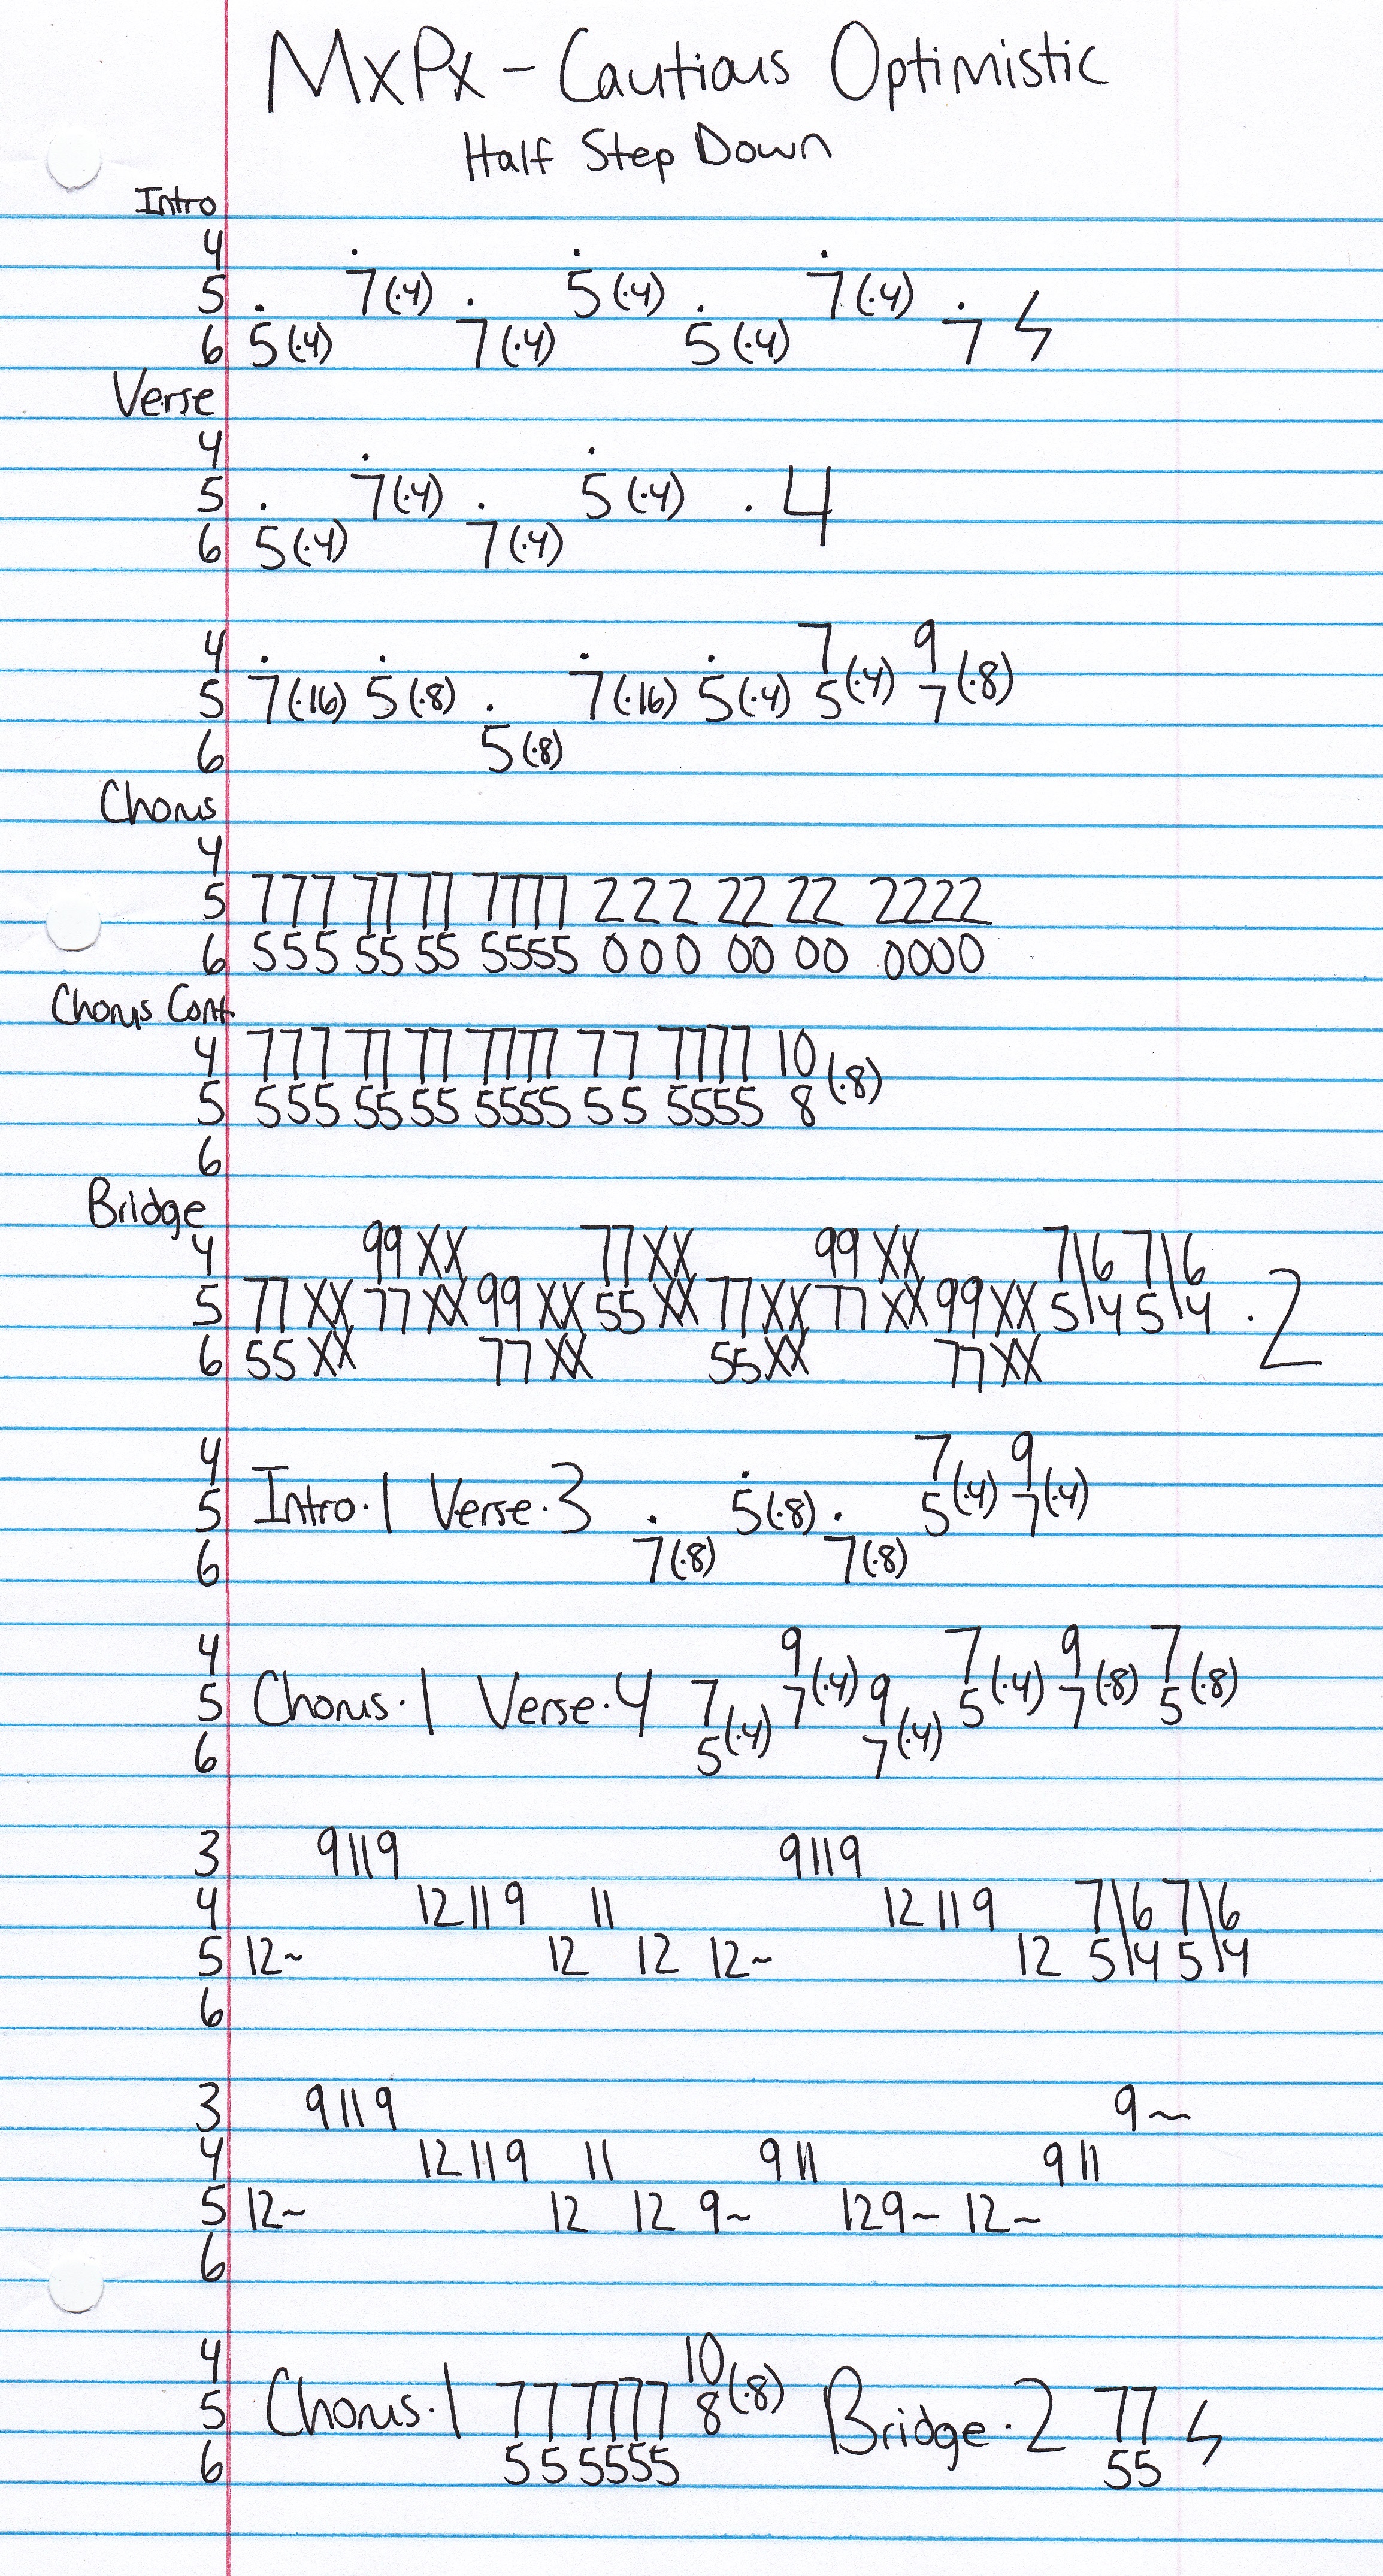 MxPx - Cautious Optimistic
Half Step Down
Intro
4 . . .
5 . 7(·4) . 5(·4) . 7(·4) .
6 5(·4) 7(·4) 5(·4) 7
Verse
4 . .
5 . 7(·4) . 5(·4) · 4
6 5(·4) 7(·4)
4 . . . . 7 9
5 7(·16) 5(·8) . 7(·16) 5(·4) 5(·4) 7(·8)
6 5(·8)
Chorus
4
5 777 77 77 7777 222 22 22 2222
6 555 55 55 5555 000 00 00 0000
Chorus Cont.
4 777 77 77 7777 77 7777 10
5 555 55 55 5555 55 5555 8 (·8)
6
Bridge
4 99 XX 77 XX 99 XX 7\6 7\6
5 77 XX 77 XX 99 XX 55 XX 77 XX 77 XX 99 XX 5\4 5\4 · 2
6 55 XX 77 XX 55 XX 77 XX
4 . 7 9
5 Intro·1 Verse·3 . 5(·8) . 5(·4) 7(·4)
6 7(·8) 7(·8)
4 9 7 9 7
5 Chorus·1 Verse·4 7 7(·4) 9 5(·4) 7(·8) 5(·8)
6 5(·4) 7(·4)
3 9 11 9 9 11 9
4 12 11 9 11 12 11 9 7\6 7\6
5 12~ 12 12 12~ 12 5\4 5\4
6
3 9 11 9 9~
4 12 11 9 11 9 11 9 11
5 12~ 12 12 9~ 12 9~ 12~
6
4 10
5 Chorus·1 77 7777 8(·8) Bridge·2 77
6 55 5555 55